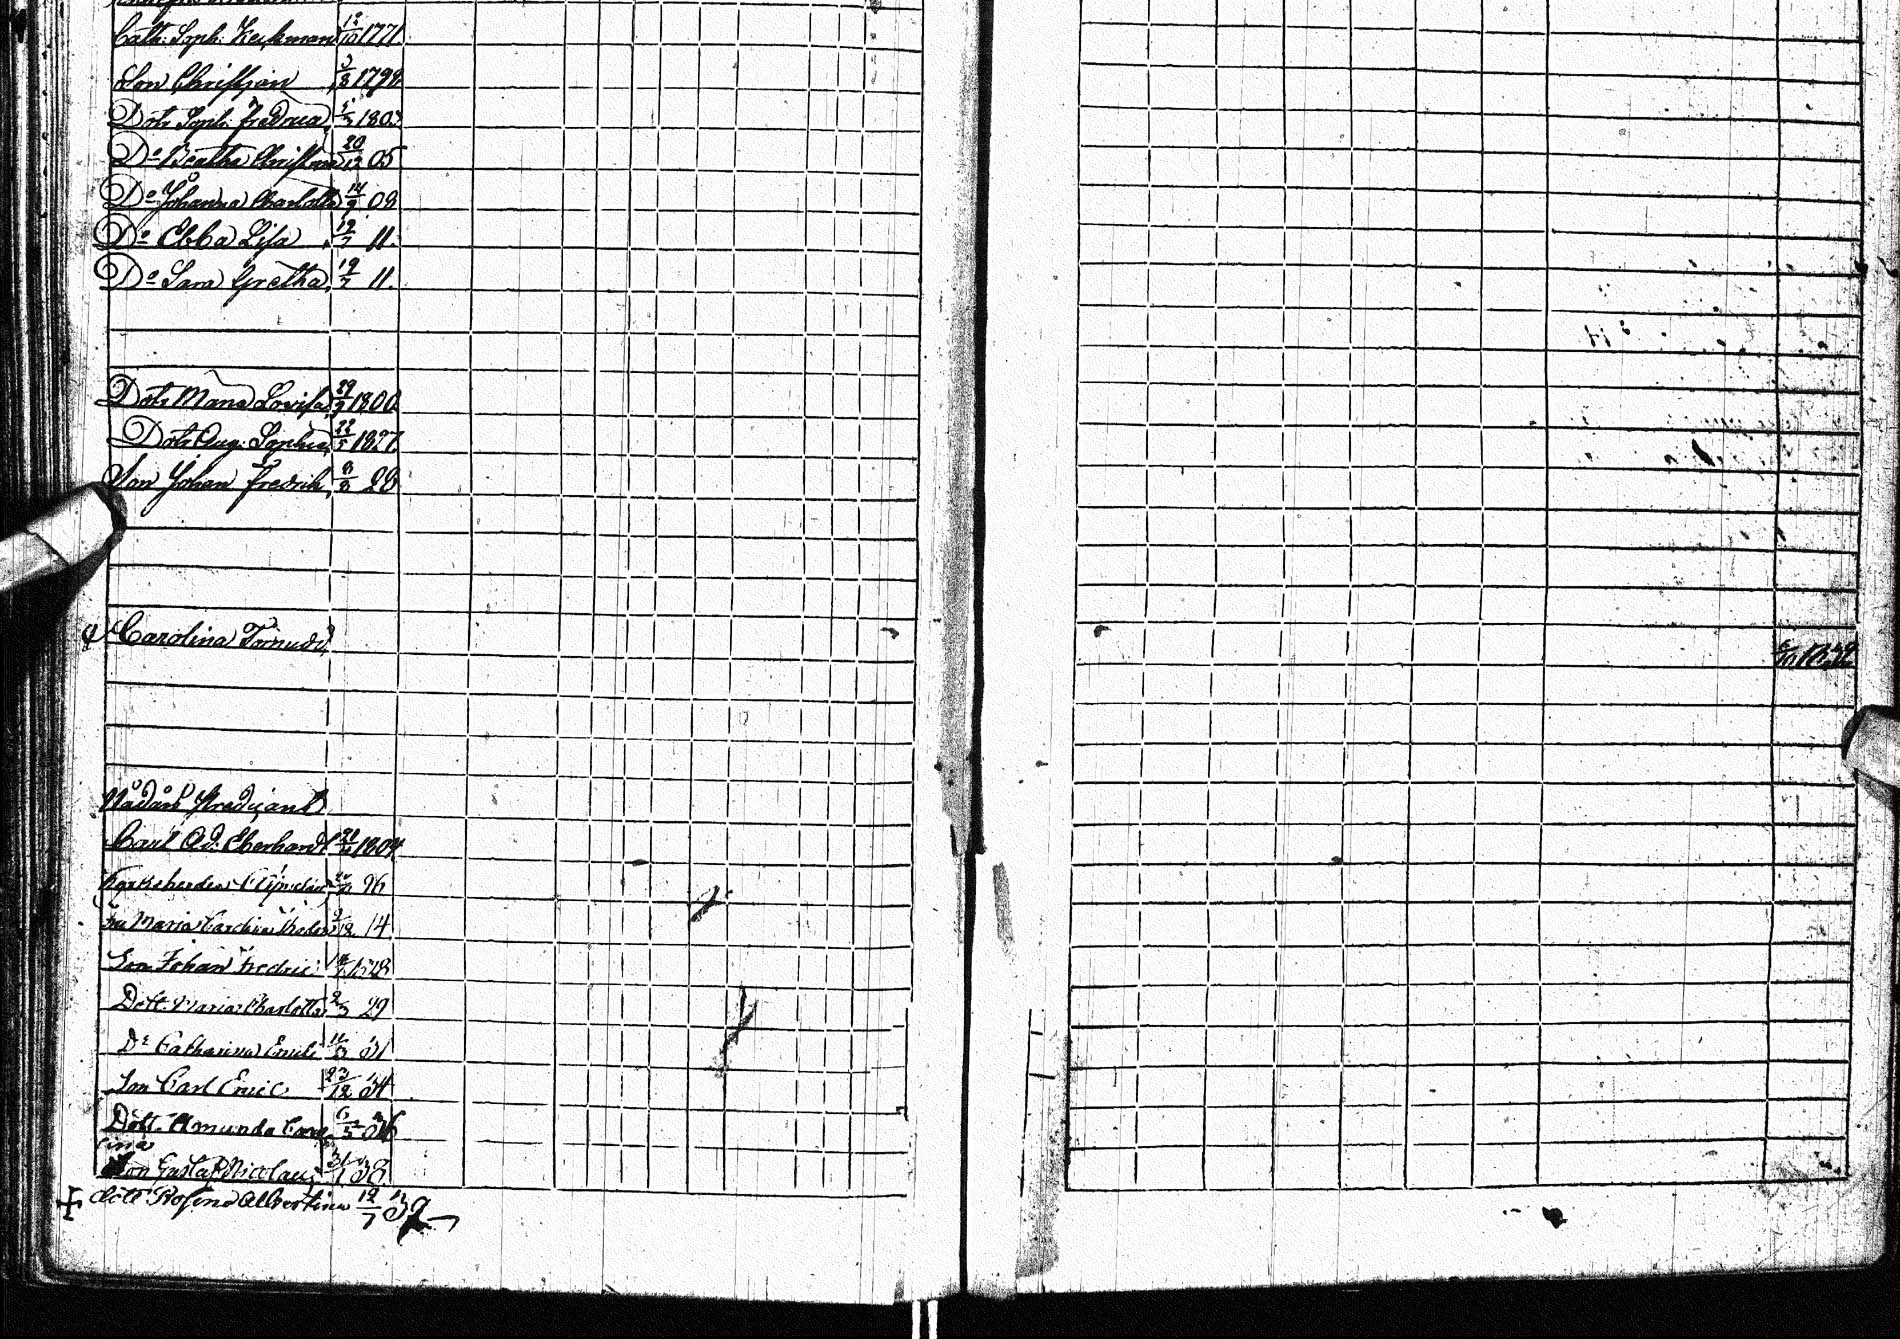 Cath: Soph: Keckman 12/10 1771
Son Christian 3/8 1798
Dotr Soph: Fredrica 5/3 1803
Do Beatha Christina 20/12 05
Do Johanna Charlotta 14/9 08
Do Ebba Lisa 19/7 11.
Do Sara Gretha 19/7 11.
Dotr Maria Lovisa 29/9 1800
Dotr Aug: Sophia 22/5 1827.
Son Johan Fredrik 8/8 28
Carolina Tornudd
Nådårs Predicant
Carl Ad: Eberhard 1804
96
Maria 9/12 14
Son Johan Fredric 1828
Dott. Maria Charlotta 2/3 29
Do Catharina Emili 31
Son Carl Emil 23/12 34
Dott. Amanda Caro 6/5 36
lina
Son Gustaf Nicolaus 31/1 38
dott Rosina Albertina 12/7 39